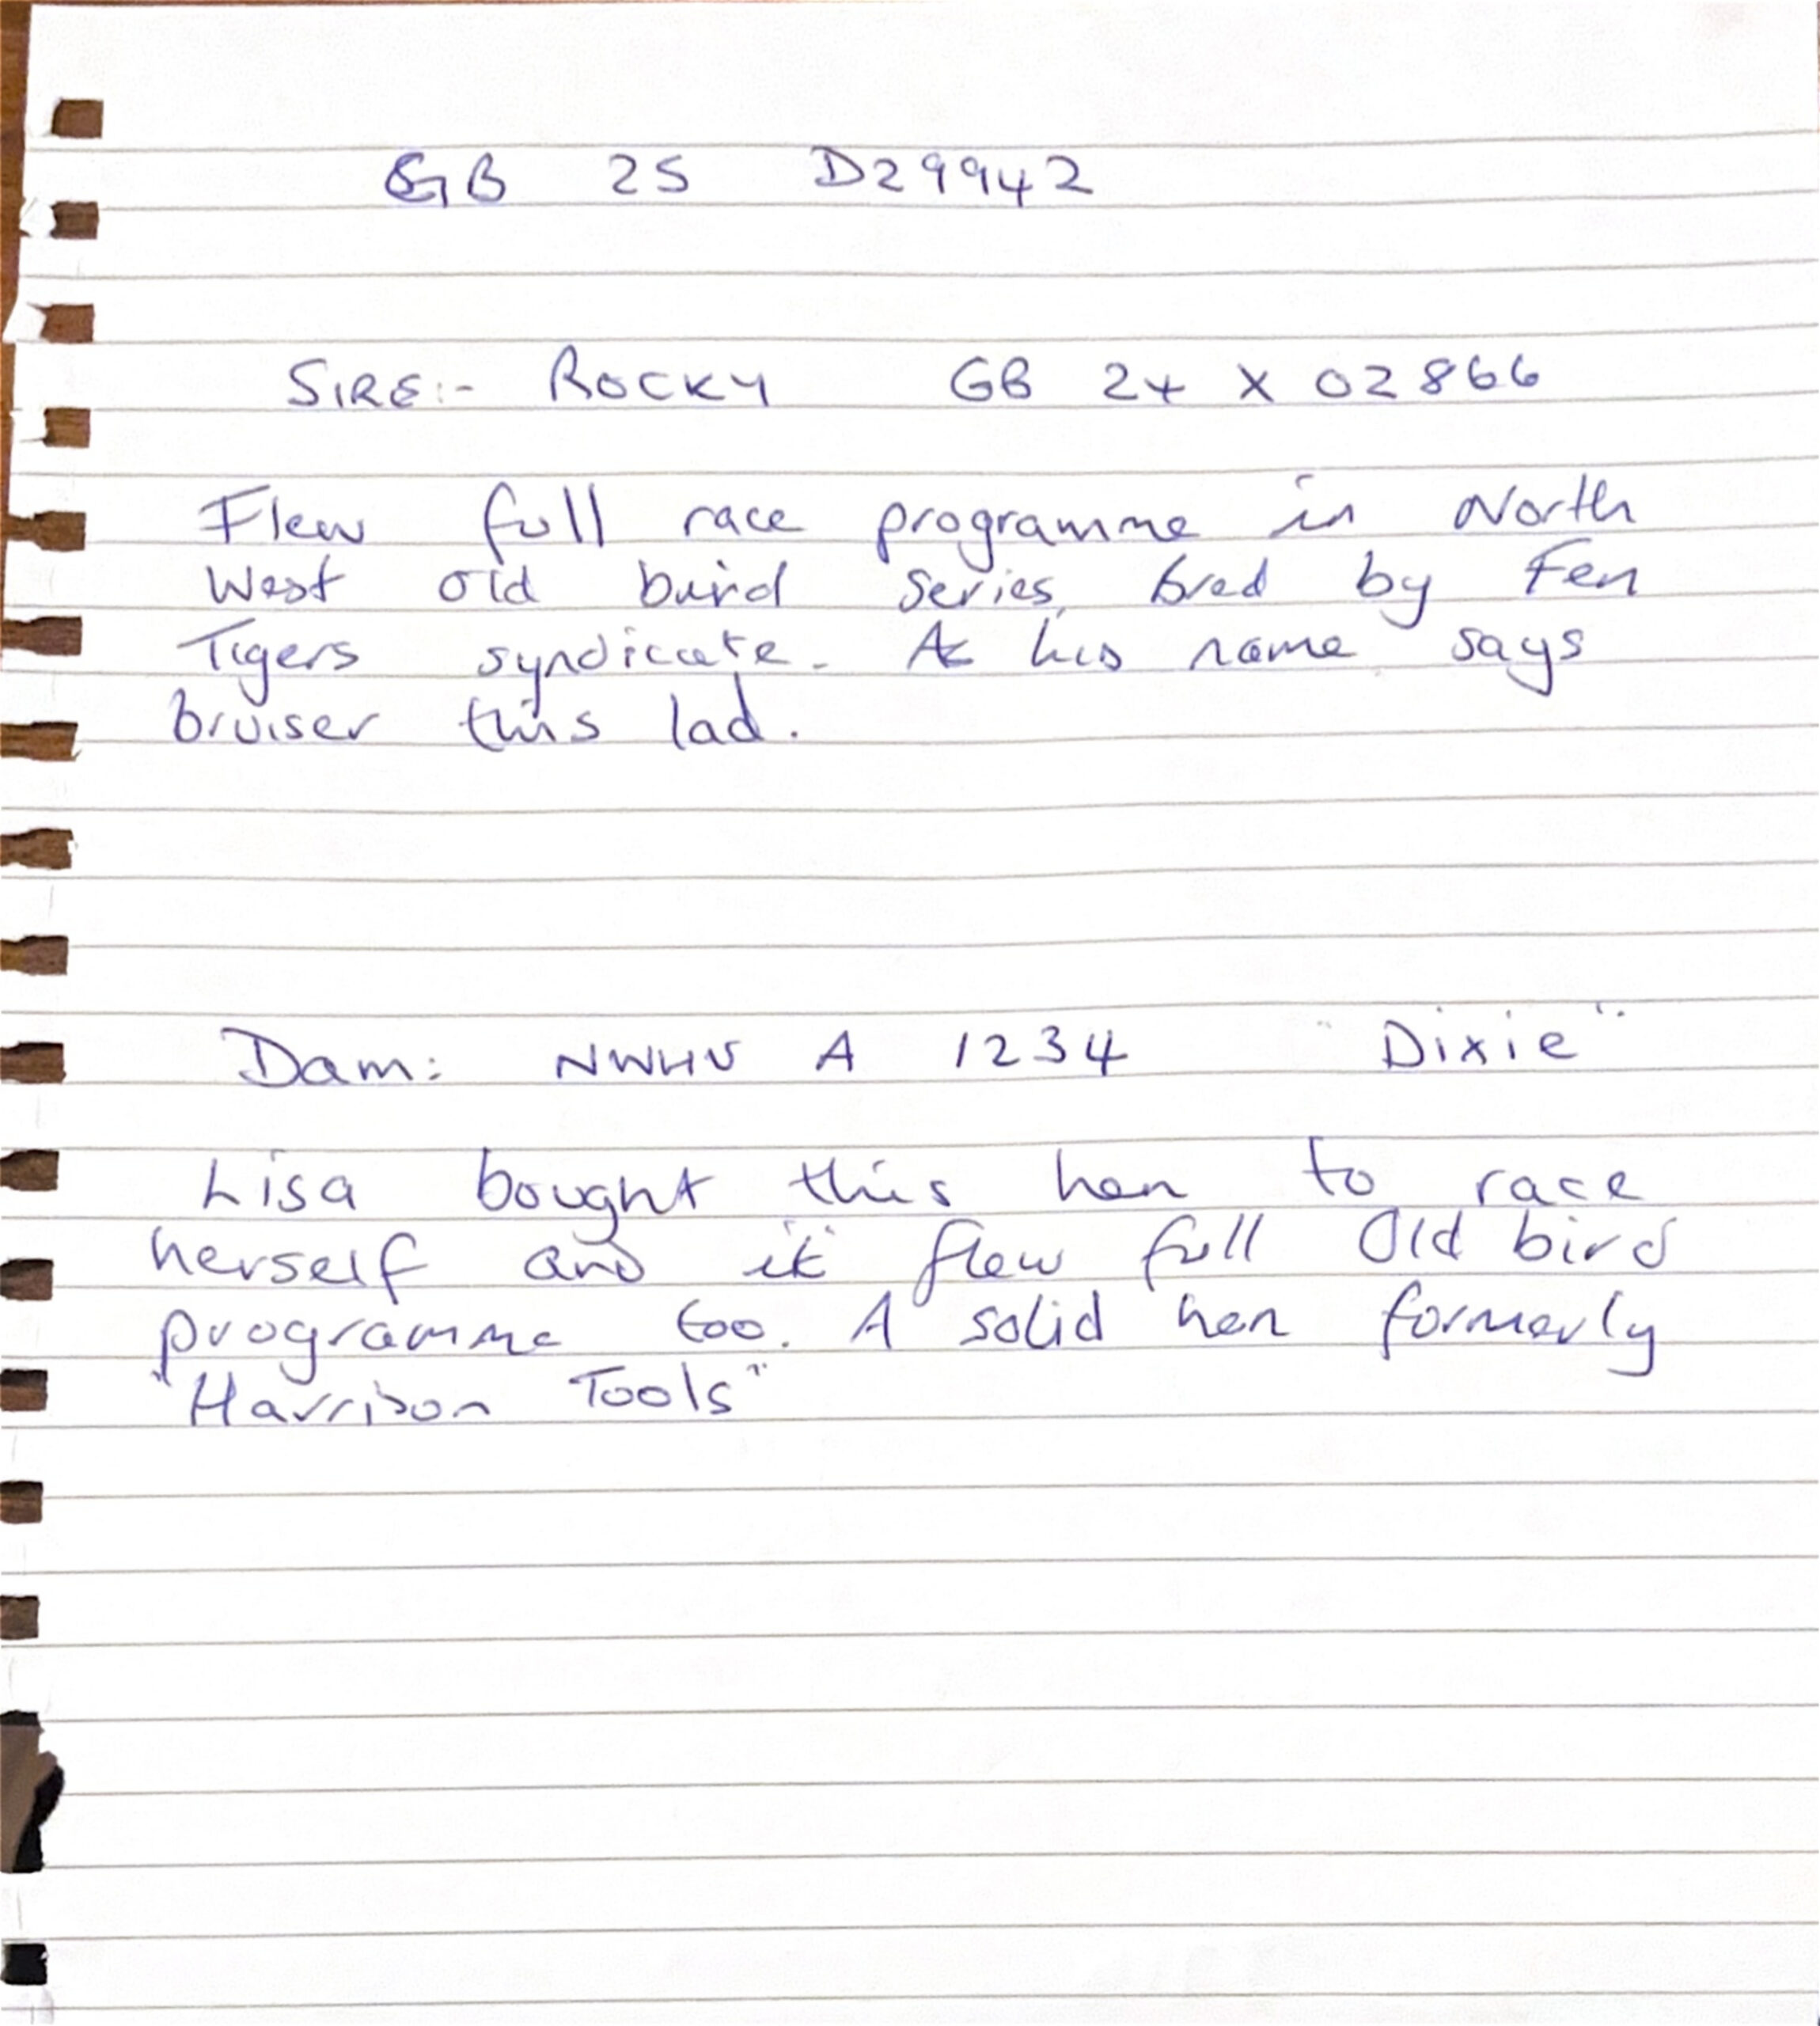 GB 25 D29942
SIRE:- ROCKY GB 24 X 02866
Flew full race programme in North
West old buird series, bred by Fen
Tigers syndicate. As his name says
bruiser this lad.
Dam: NWHU A 1234 "Dixie"
Lisa bought this hen to race
herself and "it" flew full Old bird
programme too. A solid hen formerly
"Harrison Tools"